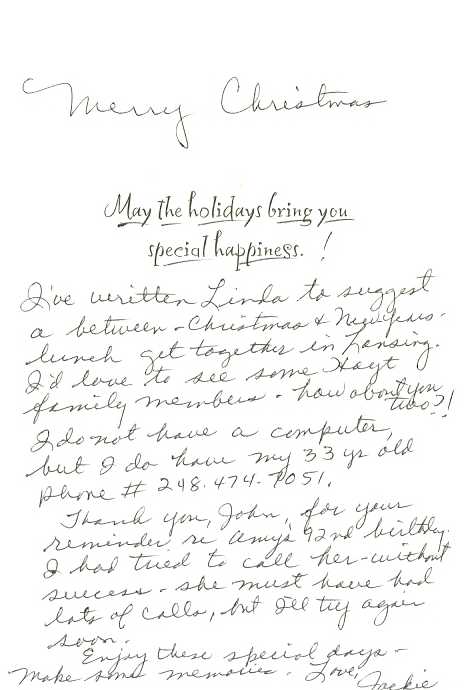 Merry Christmas
May the holidays bring you
special happiness. !
I've written Linda to suggest
a between-Christmas & New years-
lunch get together in Lansing.
I'd love to see some Hoyt
family members - how about you
two?!
I do not have a computer,
but I do have my 33 yr old
phone # 248.474.7051.
Thank you, John, for your
reminder re Amy's 92nd birthday.
I had tried to call her-without
success - she must have had
lots of calls, but I'll try again
soon.
Enjoy these special days -
Make some memories. Love,
Jackie